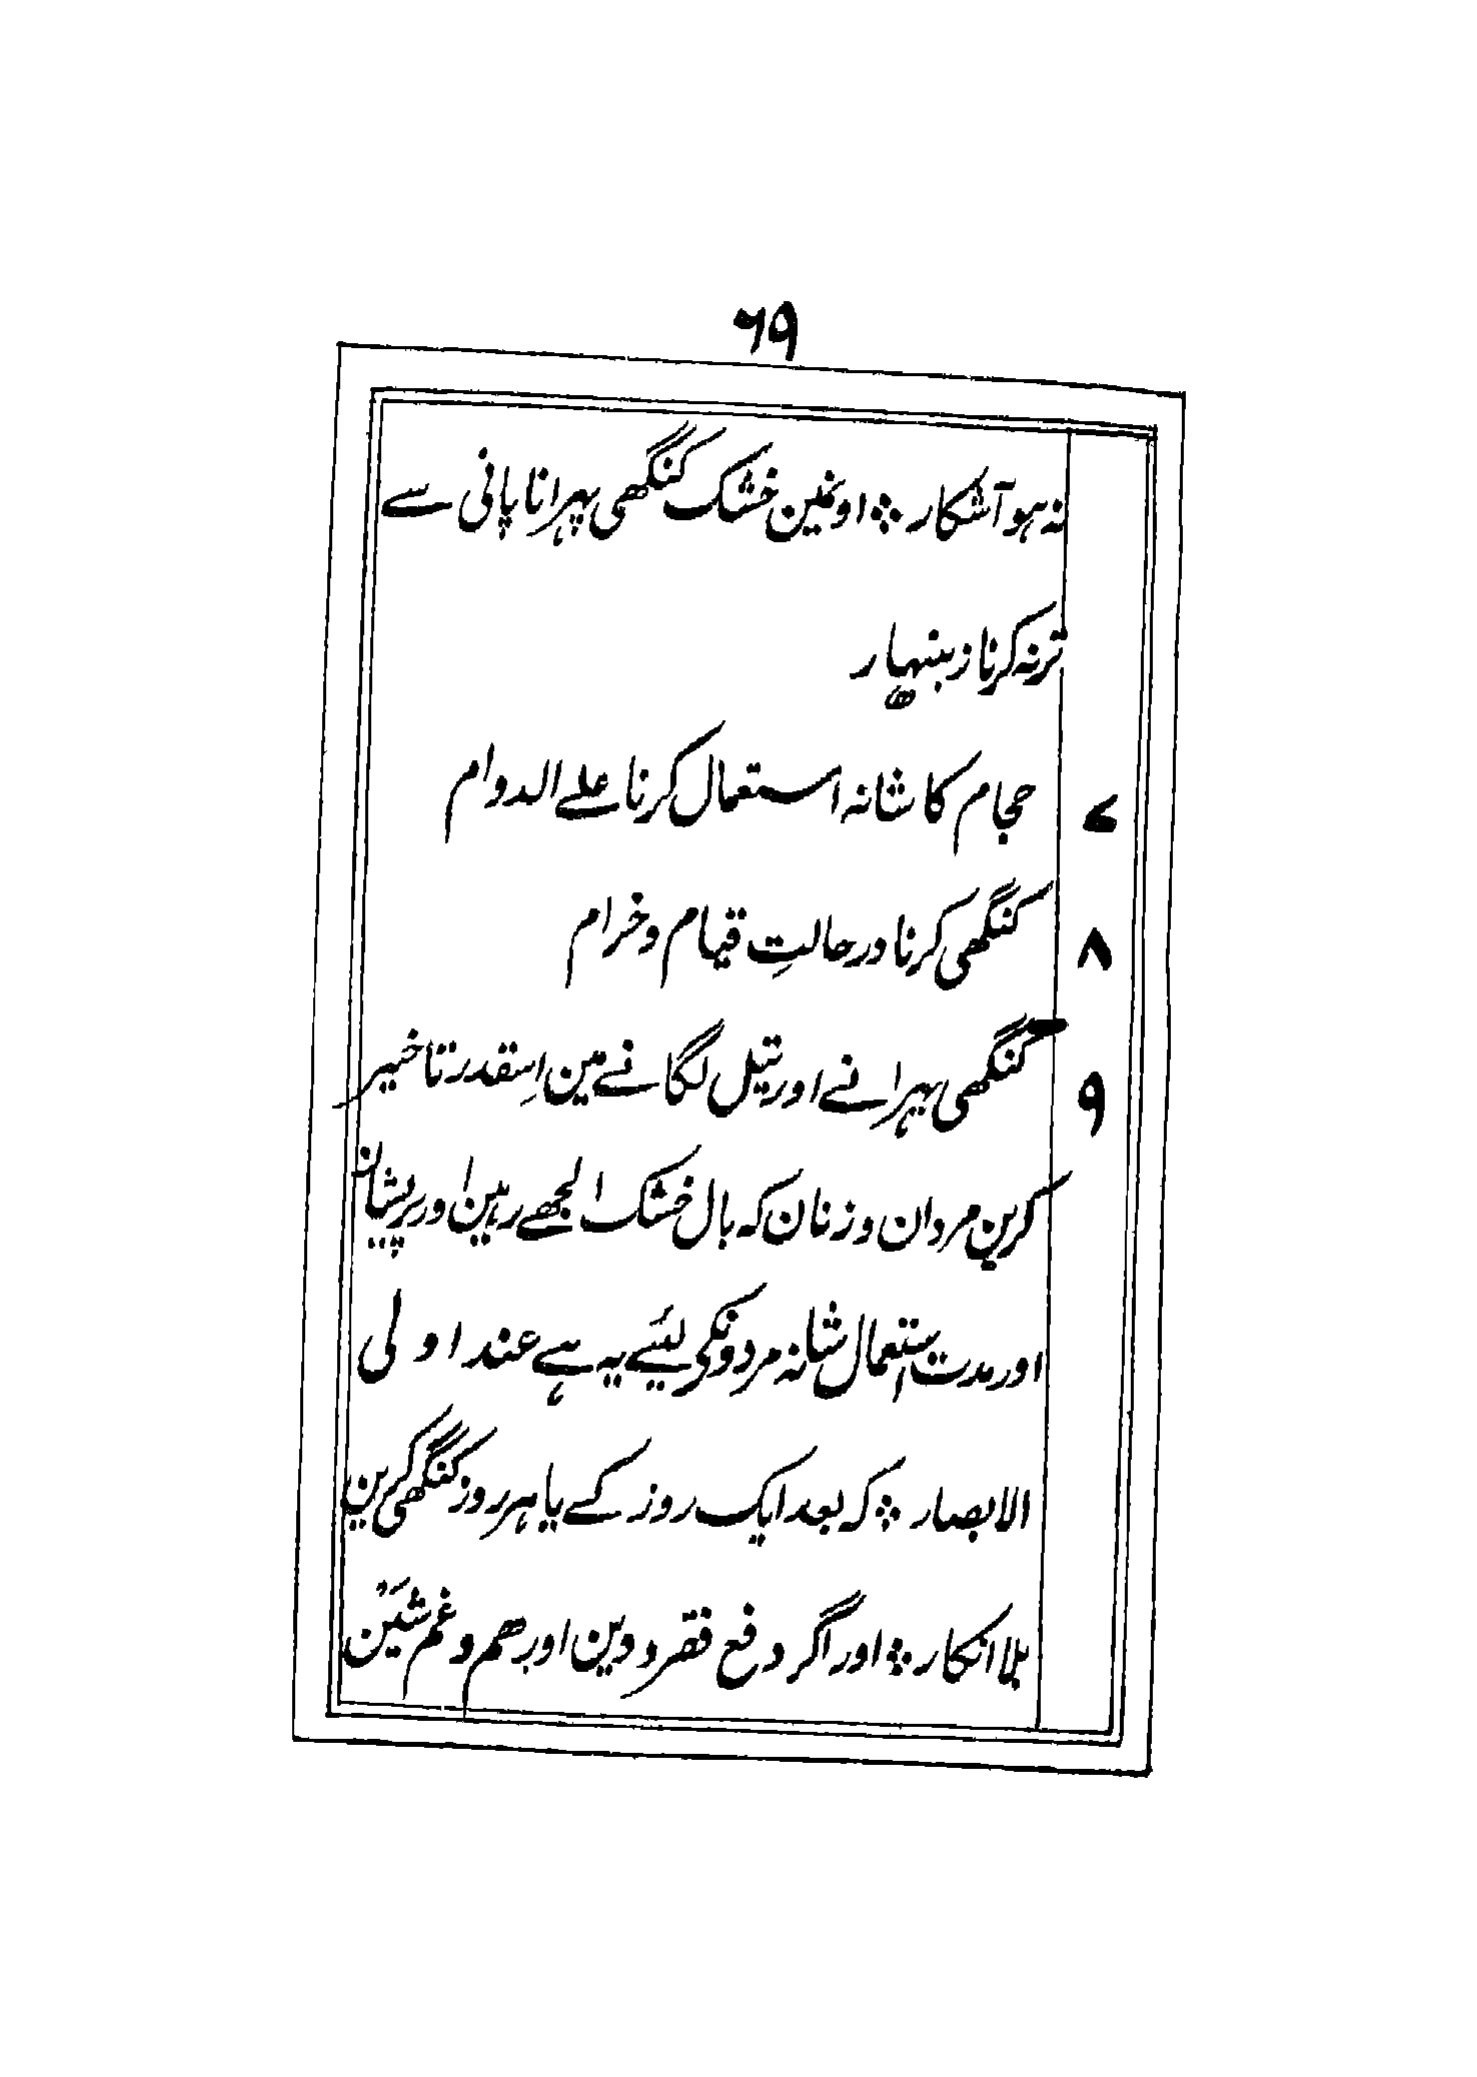 ۶۹
نہ ہو آشکار ؞ اونمین خشک کنگھی پہرانا پانی سے
تر نہ کرنا زینہار
۷ حجام کا شانہ استعمال کرنا علے الدوام
۸ کنگھی کرنا در حالتِ قیام و خرام
۹ کنگھی پہرانے اور تیل لگانے مین اِسقدر تاخیر
کرین مردان و زنان کہ بال خشک اُلجھے رہین اور پریشان
اور مدت استعمال شانہ مردونکی لیٔے یہ ہے عند اولی
الابصار ؞ کہ بعد ایک روز کے یا ہر روز کنگھی کرین
بلا انکار ؞ اور اگر دفع فقر و دین اور ھم و غم شَیْن